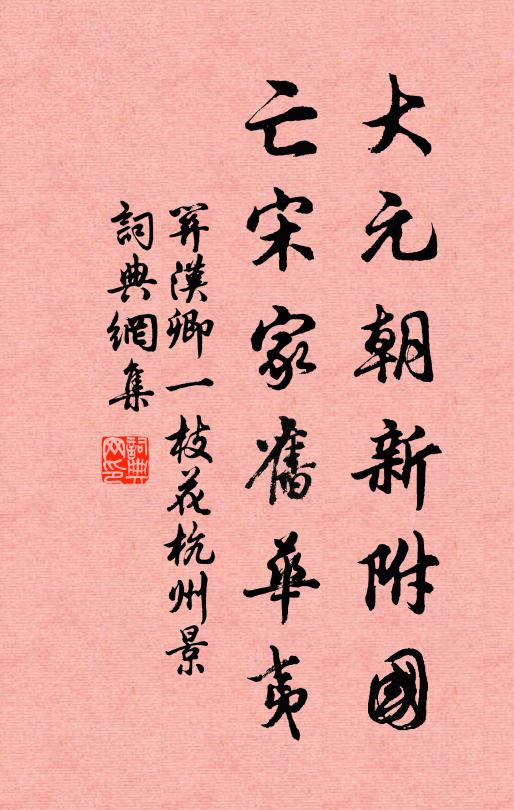 大元朝新附國
亡宋家舊華夷
關漢卿一枝花杭州景
詞典網集
詞典網印